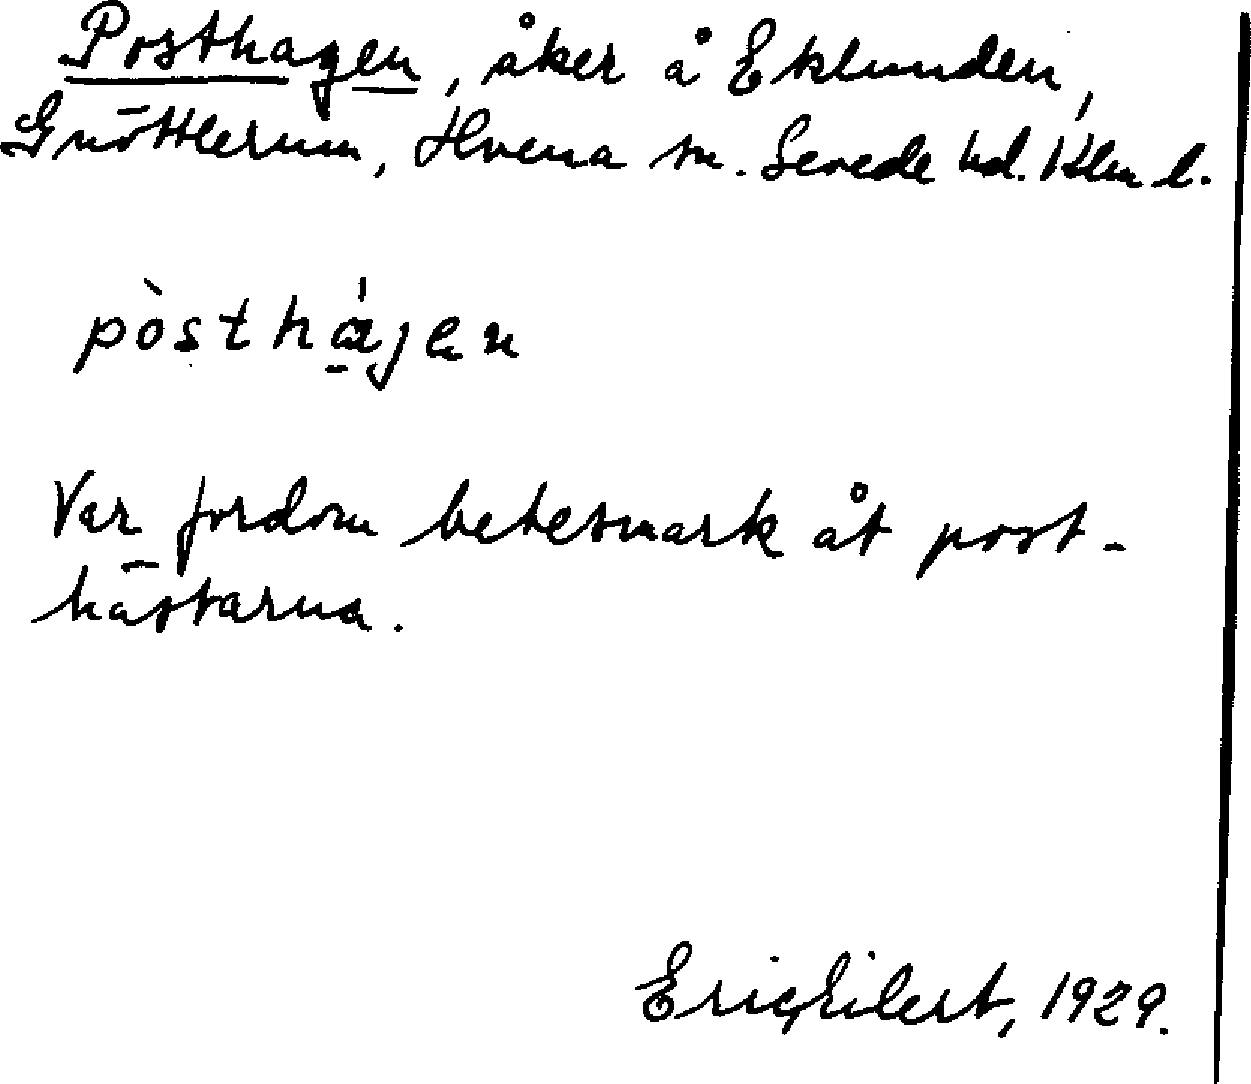 Posthagen, åker å Eklunden,
Gnöttlerum, Hvena sn. Sevede hd. Klm l.
pòsthájen
Var fordom betesmark åt post-
hästarna.
Eric Eilert, 1929.